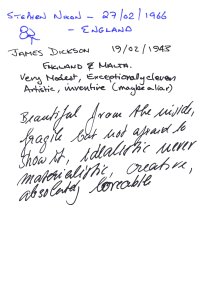 STEPHEN NIXON - 27/02/1966
- ENGLAND
JAMES DICKSON 19/02/1943
ENGLAND & MALTA.
Very Modest, Exceptionally clever,
Artistic, inventive (maybe a liar)
Beautiful from the inside,
fragile but not afraid to
show it, idealistic never
materialistic, creative,
absolutely lovable